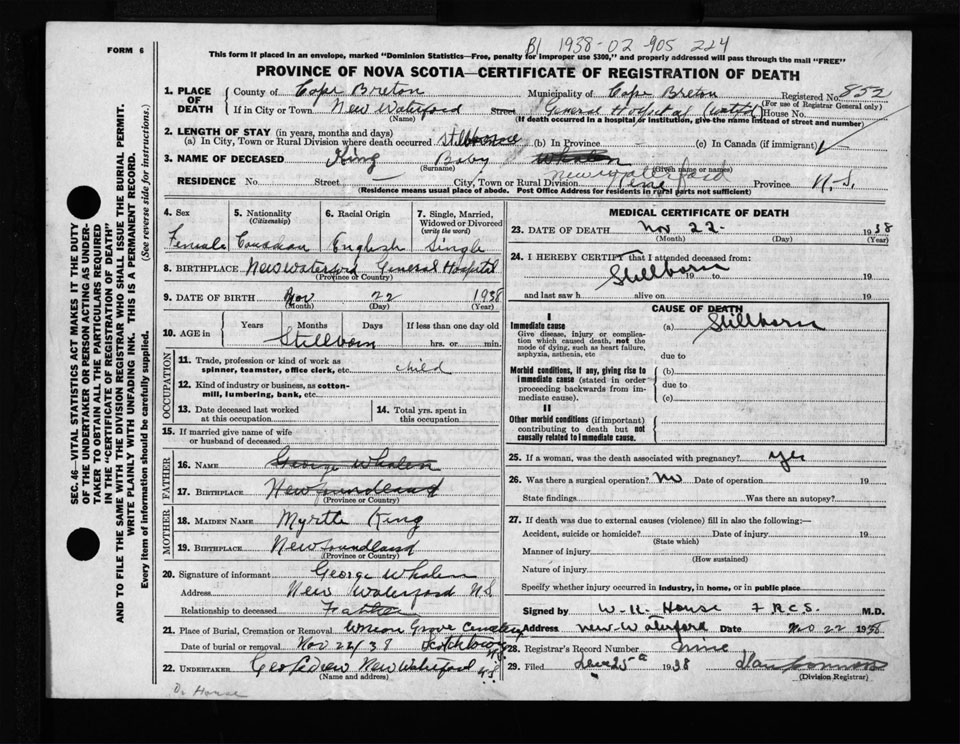 B1 1938-02-905 224
FORM 6
This form if placed in an envelope, marked "Dominion Statistics—Free, penalty for improper use $300," and properly addressed will pass through the mail "FREE"
PROVINCE OF NOVA SCOTIA—CERTIFICATE OF REGISTRATION OF DEATH
1. PLACE OF DEATH County of Cape Breton Municipality of Cape Breton Registered No. 852
(For use of Registrar General only)
If in City or Town New Waterford Street General Hospital House No.
(Name) (If death occurred in a hospital or institution, give the name instead of street and number)
2. LENGTH OF STAY (in years, months and days)
(a) In City, Town or Rural Division where death occurred (b) In Province — (c) In Canada (if immigrant)
3. NAME OF DECEASED King Baby Whalen
(Surname) (Given name or names)
RESIDENCE No. Street City, Town or Rural Division New Waterford Province N.S.
(Residence means usual place of abode. Post Office Address for residents in rural parts not sufficient)
4. Sex Female
5. Nationality (Citizenship) Canadian
6. Racial Origin English
7. Single, Married, Widowed or Divorced (write the word) Single
8. BIRTHPLACE New Waterford General Hospital
(Province or Country)
9. DATE OF BIRTH Nov 22 1938
(Month) (Day) (Year)
10. AGE in Years Months Days If less than one day old
Stillborn hrs. or min.
OCCUPATION
11. Trade, profession or kind of work as spinner, teamster, office clerk, etc. child
12. Kind of industry or business, as cotton-mill, lumbering, bank, etc.
13. Date deceased last worked at this occupation
14. Total yrs. spent in this occupation
15. If married give name of wife or husband of deceased
FATHER
16. NAME George Whalen
17. BIRTHPLACE Newfoundland
(Province or Country)
MOTHER
18. MAIDEN NAME Myrtle King
19. BIRTHPLACE Newfoundland
(Province or Country)
20. Signature of informant George Whalen
Address New Waterford N.S
Relationship to deceased Father
21. Place of Burial, Cremation or Removal Union Grove Cemetery
Date of burial or removal Nov 22/38 Scotchtown N.S.
22. UNDERTAKER New Waterford N.S.
(Name and address)
Dr House
MEDICAL CERTIFICATE OF DEATH
23. DATE OF DEATH Nov 22 1938
(Month) (Day) (Year)
24. I HEREBY CERTIFY That I attended deceased from:
Stillborn 19 to 19
and last saw h alive on 19
CAUSE OF DEATH
I
Immediate cause (a) Stillborn
Give disease, injury or complication which caused death, not the mode of dying, such as heart failure, asphyxia, asthenia, etc
due to
Morbid conditions, if any, giving rise to immediate cause (stated in order proceeding backwards from immediate cause). (b)
due to
(c)
II
Other morbid conditions (if important) contributing to death but not causally related to Immediate cause.
25. If a woman, was the death associated with pregnancy? yes
26. Was there a surgical operation? No Date of operation 19
State findings Was there an autopsy?
27. If death was due to external causes (violence) fill in also the following:—
Accident, suicide or homicide? Date of injury 19
(State which)
Manner of injury
(How sustained)
Nature of injury
Specify whether injury occurred in industry, in home, or in public place
Signed by W.H. House F.R.C.S. M.D.
Address New Waterford Date Nov 22 1938
28. Registrar's Record Number nine
29. Filed 1938
(Division Registrar)
SEC. 46—VITAL STATISTICS ACT MAKES IT THE DUTY
OF THE UNDERTAKER OR PERSON ACTING AS UNDER-
TAKER TO OBTAIN ALL THE PARTICULARS REQUIRED
IN THE "CERTIFICATE OF REGISTRATION OF DEATH"
AND TO FILE THE SAME WITH THE DIVISION REGISTRAR WHO SHALL ISSUE THE BURIAL PERMIT.
WRITE PLAINLY WITH UNFADING INK. THIS IS A PERMANENT RECORD.
Every item of information should be carefully supplied. (See reverse side for instructions.)